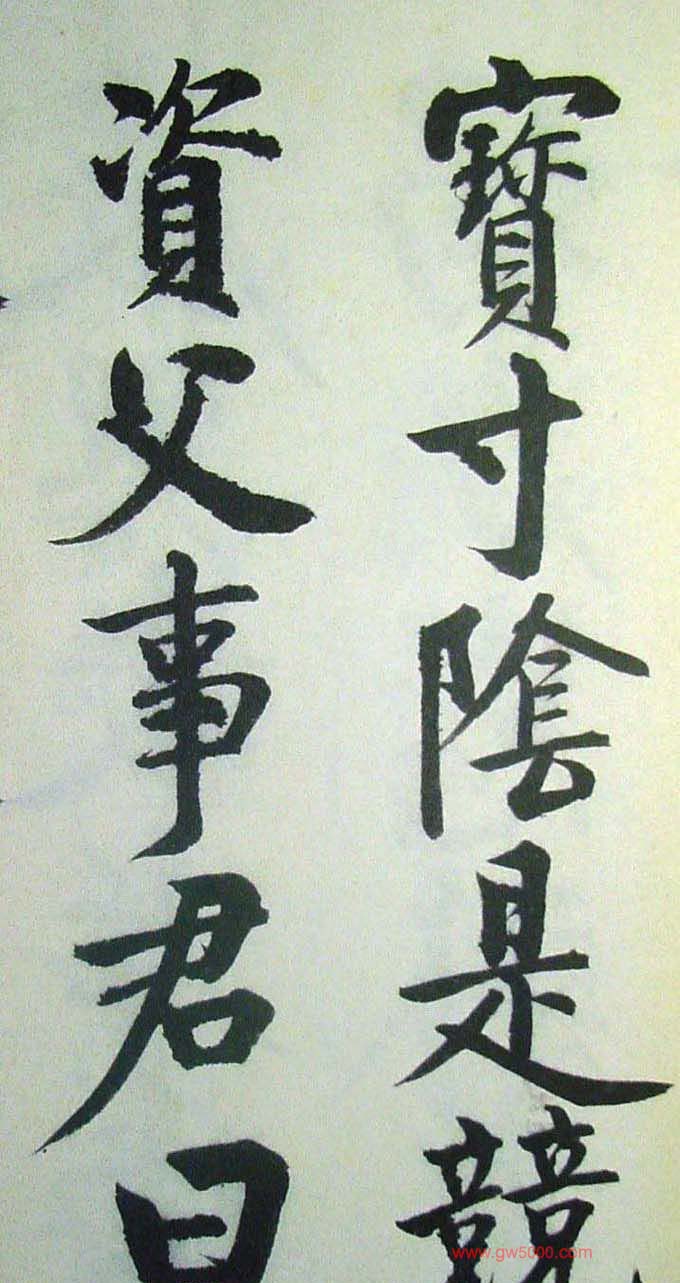 寶寸陰是競
資父事君曰
www.gw5000.com